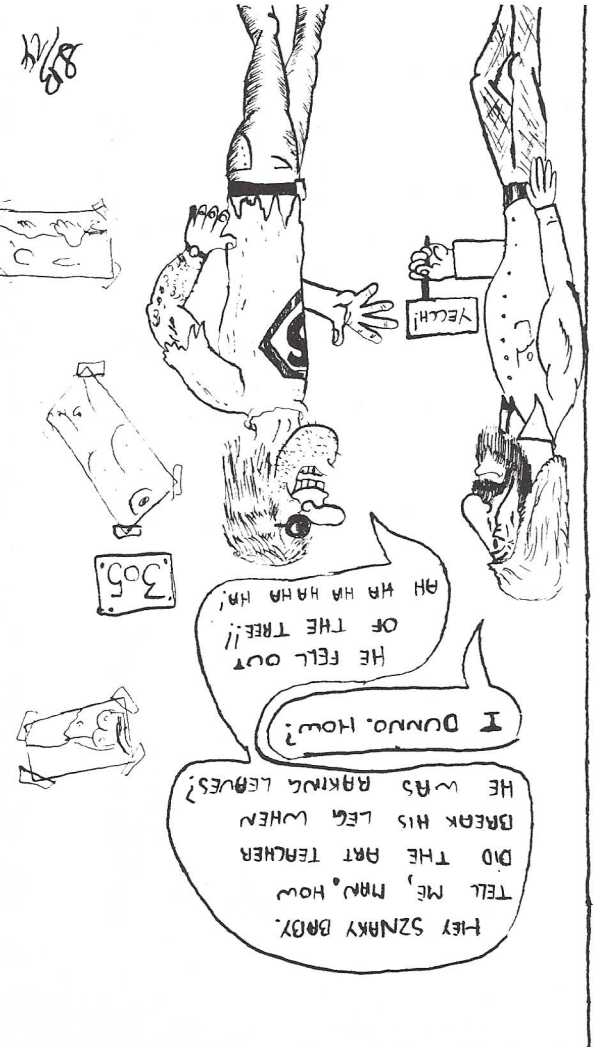 HEY SZNAKY BABY.
TELL ME, MAN, HOW
DID THE ART TEACHER
BREAK HIS LEG WHEN
HE WAS RAKING LEAVES?
I DUNNO. HOW?
HE FELL OUT
OF THE TREE!!
AH HA HA HAHA HA!
305
YECCH!
S